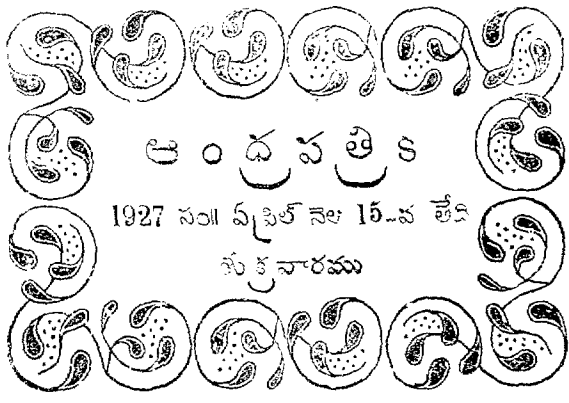 ఆంధ్రపత్రిక
1927 సం॥ ఏప్రిల్ నెల 15-వ తేది
శుక్రవారము